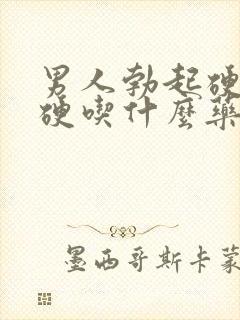 男人勃起硬
硬喫什麼藥
墨西哥斯卡蒙